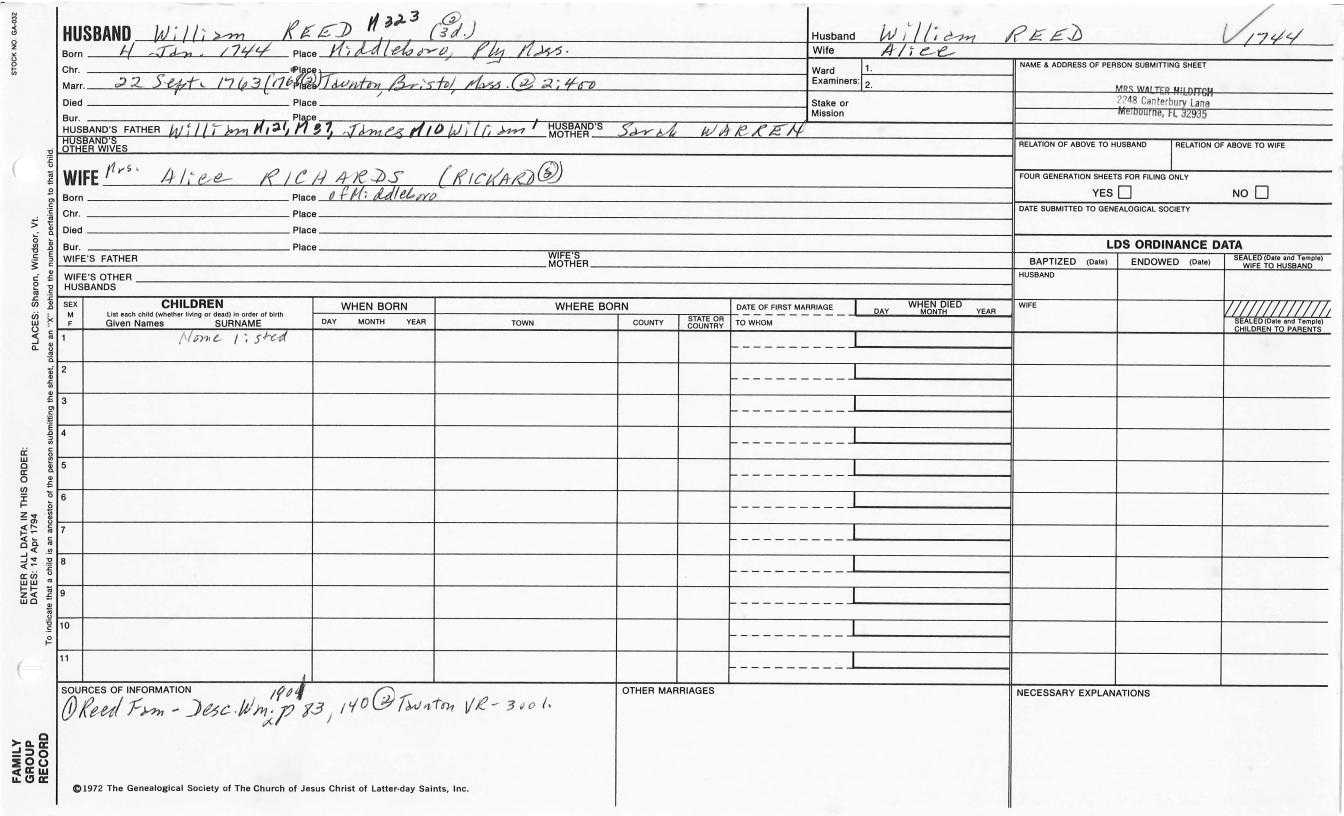 STOCK NO. GA-032
HUSBAND William REED M323 ② (3d.)
Born 4 Jan. 1744 Place Middleboro, Ply Mass.
Chr. Place
Marr. 22 Sept. 1763 Place Taunton, Bristol, Mass. ② 2:400
Died Place
Bur. Place
HUSBAND'S FATHER William M121, M37, James M10 William¹ HUSBAND'S MOTHER Sarah WARREN
HUSBAND'S OTHER WIVES
WIFE Mrs. Alice RICHARDS (RICKARD)
Born Place of Middleboro
Chr. Place
Died Place
Bur. Place
WIFE'S FATHER WIFE'S MOTHER
WIFE'S OTHER HUSBANDS
Husband William REED √1744
Wife Alice
Ward Examiners: 1.
2.
Stake or Mission
NAME & ADDRESS OF PERSON SUBMITTING SHEET
MRS WALTER HILDITCH
2248 Canterbury Lane
Melbourne, FL 32935
RELATION OF ABOVE TO HUSBAND RELATION OF ABOVE TO WIFE
FOUR GENERATION SHEETS FOR FILING ONLY
YES NO
DATE SUBMITTED TO GENEALOGICAL SOCIETY
LDS ORDINANCE DATA
BAPTIZED (Date) ENDOWED (Date) SEALED (Date and Temple) WIFE TO HUSBAND
HUSBAND
WIFE
SEALED (Date and Temple) CHILDREN TO PARENTS
SEX M F
CHILDREN
List each child (whether living or dead) in order of birth
Given Names SURNAME
WHEN BORN
DAY MONTH YEAR
WHERE BORN
TOWN COUNTY STATE OR COUNTRY
DATE OF FIRST MARRIAGE
TO WHOM
WHEN DIED
DAY MONTH YEAR
1 None listed
2
3
4
5
6
7
8
9
10
11
SOURCES OF INFORMATION
1901
① Reed Fam - Desc. Wm. p 83, 140 ② Taunton VR -
OTHER MARRIAGES
NECESSARY EXPLANATIONS
©1972 The Genealogical Society of The Church of Jesus Christ of Latter-day Saints, Inc.
FAMILY GROUP RECORD
ENTER ALL DATA IN THIS ORDER:
DATES: 14 Apr 1794
PLACES: Sharon, Windsor, Vt.
To indicate that a child is an ancestor of the person submitting the sheet, place an "X" behind the number pertaining to that child.